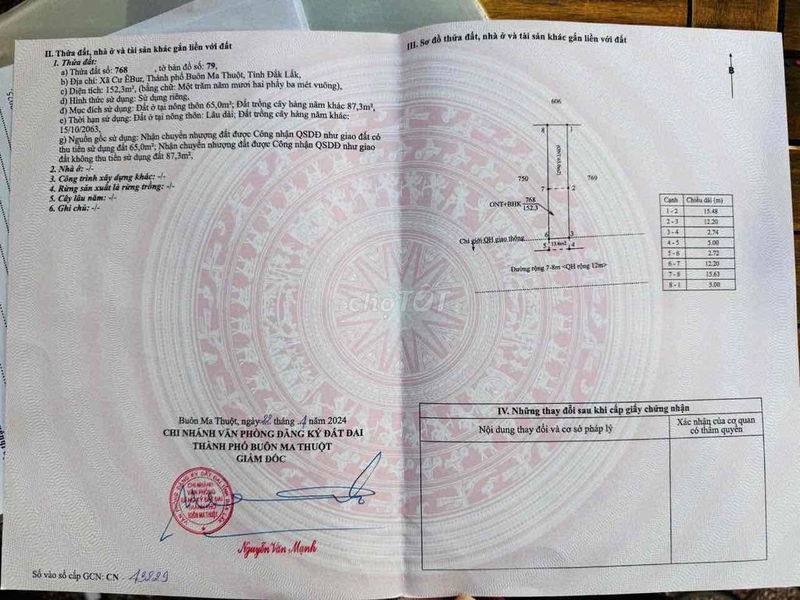 II. Thửa đất, nhà ở và tài sản khác gắn liền với đất
1. Thửa đất:
a) Thửa đất số: 768 , tờ bản đồ số: 79,
b) Địa chỉ: Xã Cư ÊBur, Thành phố Buôn Ma Thuột, Tỉnh Đắk Lắk,
c) Diện tích: 152,3m², (bằng chữ: Một trăm năm mươi hai phẩy ba mét vuông),
d) Hình thức sử dụng: Sử dụng riêng,
đ) Mục đích sử dụng: Đất ở tại nông thôn 65,0m²; Đất trồng cây hàng năm khác 87,3m²,
e) Thời hạn sử dụng: Đất ở tại nông thôn: Lâu dài; Đất trồng cây hàng năm khác:
15/10/2063,
g) Nguồn gốc sử dụng: Nhận chuyển nhượng đất được Công nhận QSDĐ như giao đất có
thu tiền sử dụng đất 65,0m²; Nhận chuyển nhượng đất được Công nhận QSDĐ như giao
đất không thu tiền sử dụng đất 87,3m².
2. Nhà ở: -/-
3. Công trình xây dựng khác: -/-
4. Rừng sản xuất là rừng trồng: -/-
5. Cây lâu năm: -/-
6. Ghi chú: -/-
Buôn Ma Thuột, ngày 22 tháng 4 năm 2024
CHI NHÁNH VĂN PHÒNG ĐĂNG KÝ ĐẤT ĐAI
THÀNH PHỐ BUÔN MA THUỘT
GIÁM ĐỐC
CHI NHÁNH
VĂN PHÒNG
ĐĂNG KÝ ĐẤT ĐAI
THÀNH PHỐ
BUÔN MA THUỘT
Nguyễn Văn Mạnh
Số vào sổ cấp GCN: CN 13829
III. Sơ đồ thửa đất, nhà ở và tài sản khác gắn liền với đất
B
606
8 1
750 769
7 2
ONT+BHK 768
152.3
6 3
Chỉ giới QH giao thông
13.6m2
5 4
Đường rộng 7-8m <QH rộng 12m>
Cạnh Chiều dài (m)
1 - 2 15.48
2 - 3 12.20
3 - 4 2.74
4 - 5 5.00
5 - 6 2.72
6 - 7 12.20
7 - 8 15.63
8 - 1 5.00
chợTỐT
IV. Những thay đổi sau khi cấp giấy chứng nhận
Nội dung thay đổi và cơ sở pháp lý
Xác nhận của cơ quan
có thẩm quyền